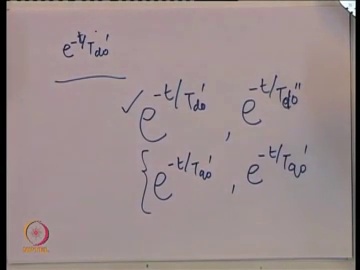 e^{-t/T'_{do}}
✓ e^{-t/T'_{do}} , e^{-t/T''_{do}}
{ e^{-t/T'_{qo}} , e^{-t/T'_{qo}}
NPTEL